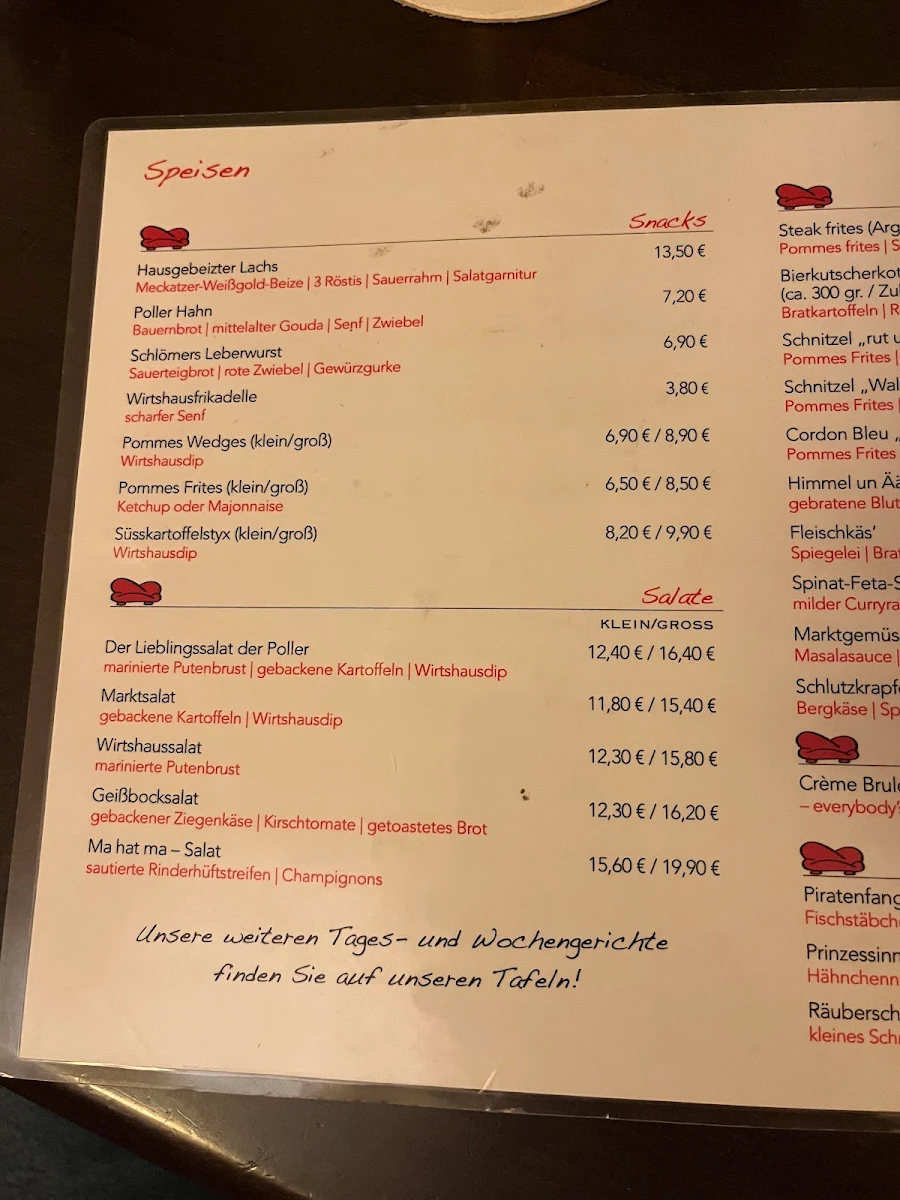 Speisen
Snacks
Hausgebeizter Lachs 13,50 €
Meckatzer-Weißgold-Beize | 3 Röstis | Sauerrahm | Salatgarnitur
Poller Hahn 7,20 €
Bauernbrot | mittelalter Gouda | Senf | Zwiebel
Schlömers Leberwurst 6,90 €
Sauerteigbrot | rote Zwiebel | Gewürzgurke
Wirtshausfrikadelle 3,80 €
scharfer Senf
Pommes Wedges (klein/groß) 6,90 € / 8,90 €
Wirtshausdip
Pommes Frites (klein/groß) 6,50 € / 8,50 €
Ketchup oder Majonnaise
Süsskartoffelstyx (klein/groß) 8,20 € / 9,90 €
Wirtshausdip
Salate
KLEIN/GROSS
Der Lieblingssalat der Poller 12,40 € / 16,40 €
marinierte Putenbrust | gebackene Kartoffeln | Wirtshausdip
Marktsalat 11,80 € / 15,40 €
gebackene Kartoffeln | Wirtshausdip
Wirtshaussalat 12,30 € / 15,80 €
marinierte Putenbrust
Geißbocksalat 12,30 € / 16,20 €
gebackener Ziegenkäse | Kirschtomate | getoastetes Brot
Ma hat ma – Salat 15,60 € / 19,90 €
sautierte Rinderhüftstreifen | Champignons
Unsere weiteren Tages- und Wochengerichte
finden Sie auf unseren Tafeln!
Steak frites (Arg
Pommes frites | S
Bierkutscherkot
(ca. 300 gr. / Zu
Bratkartoffeln | R
Schnitzel „rut u
Pommes Frites |
Schnitzel „Wal
Pommes Frites |
Cordon Bleu „
Pommes Frites
Himmel un Ää
gebratene Blut
Fleischkäs’
Spiegelei | Bra
Spinat-Feta-S
milder Curryra
Marktgemüs
Masalasauce |
Schlutzkrapf
Bergkäse | Sp
Crème Brul
– everybody’
Piratenfang
Fischstäbch
Prinzessinn
Hähnchenn
Räubersch
kleines Sch